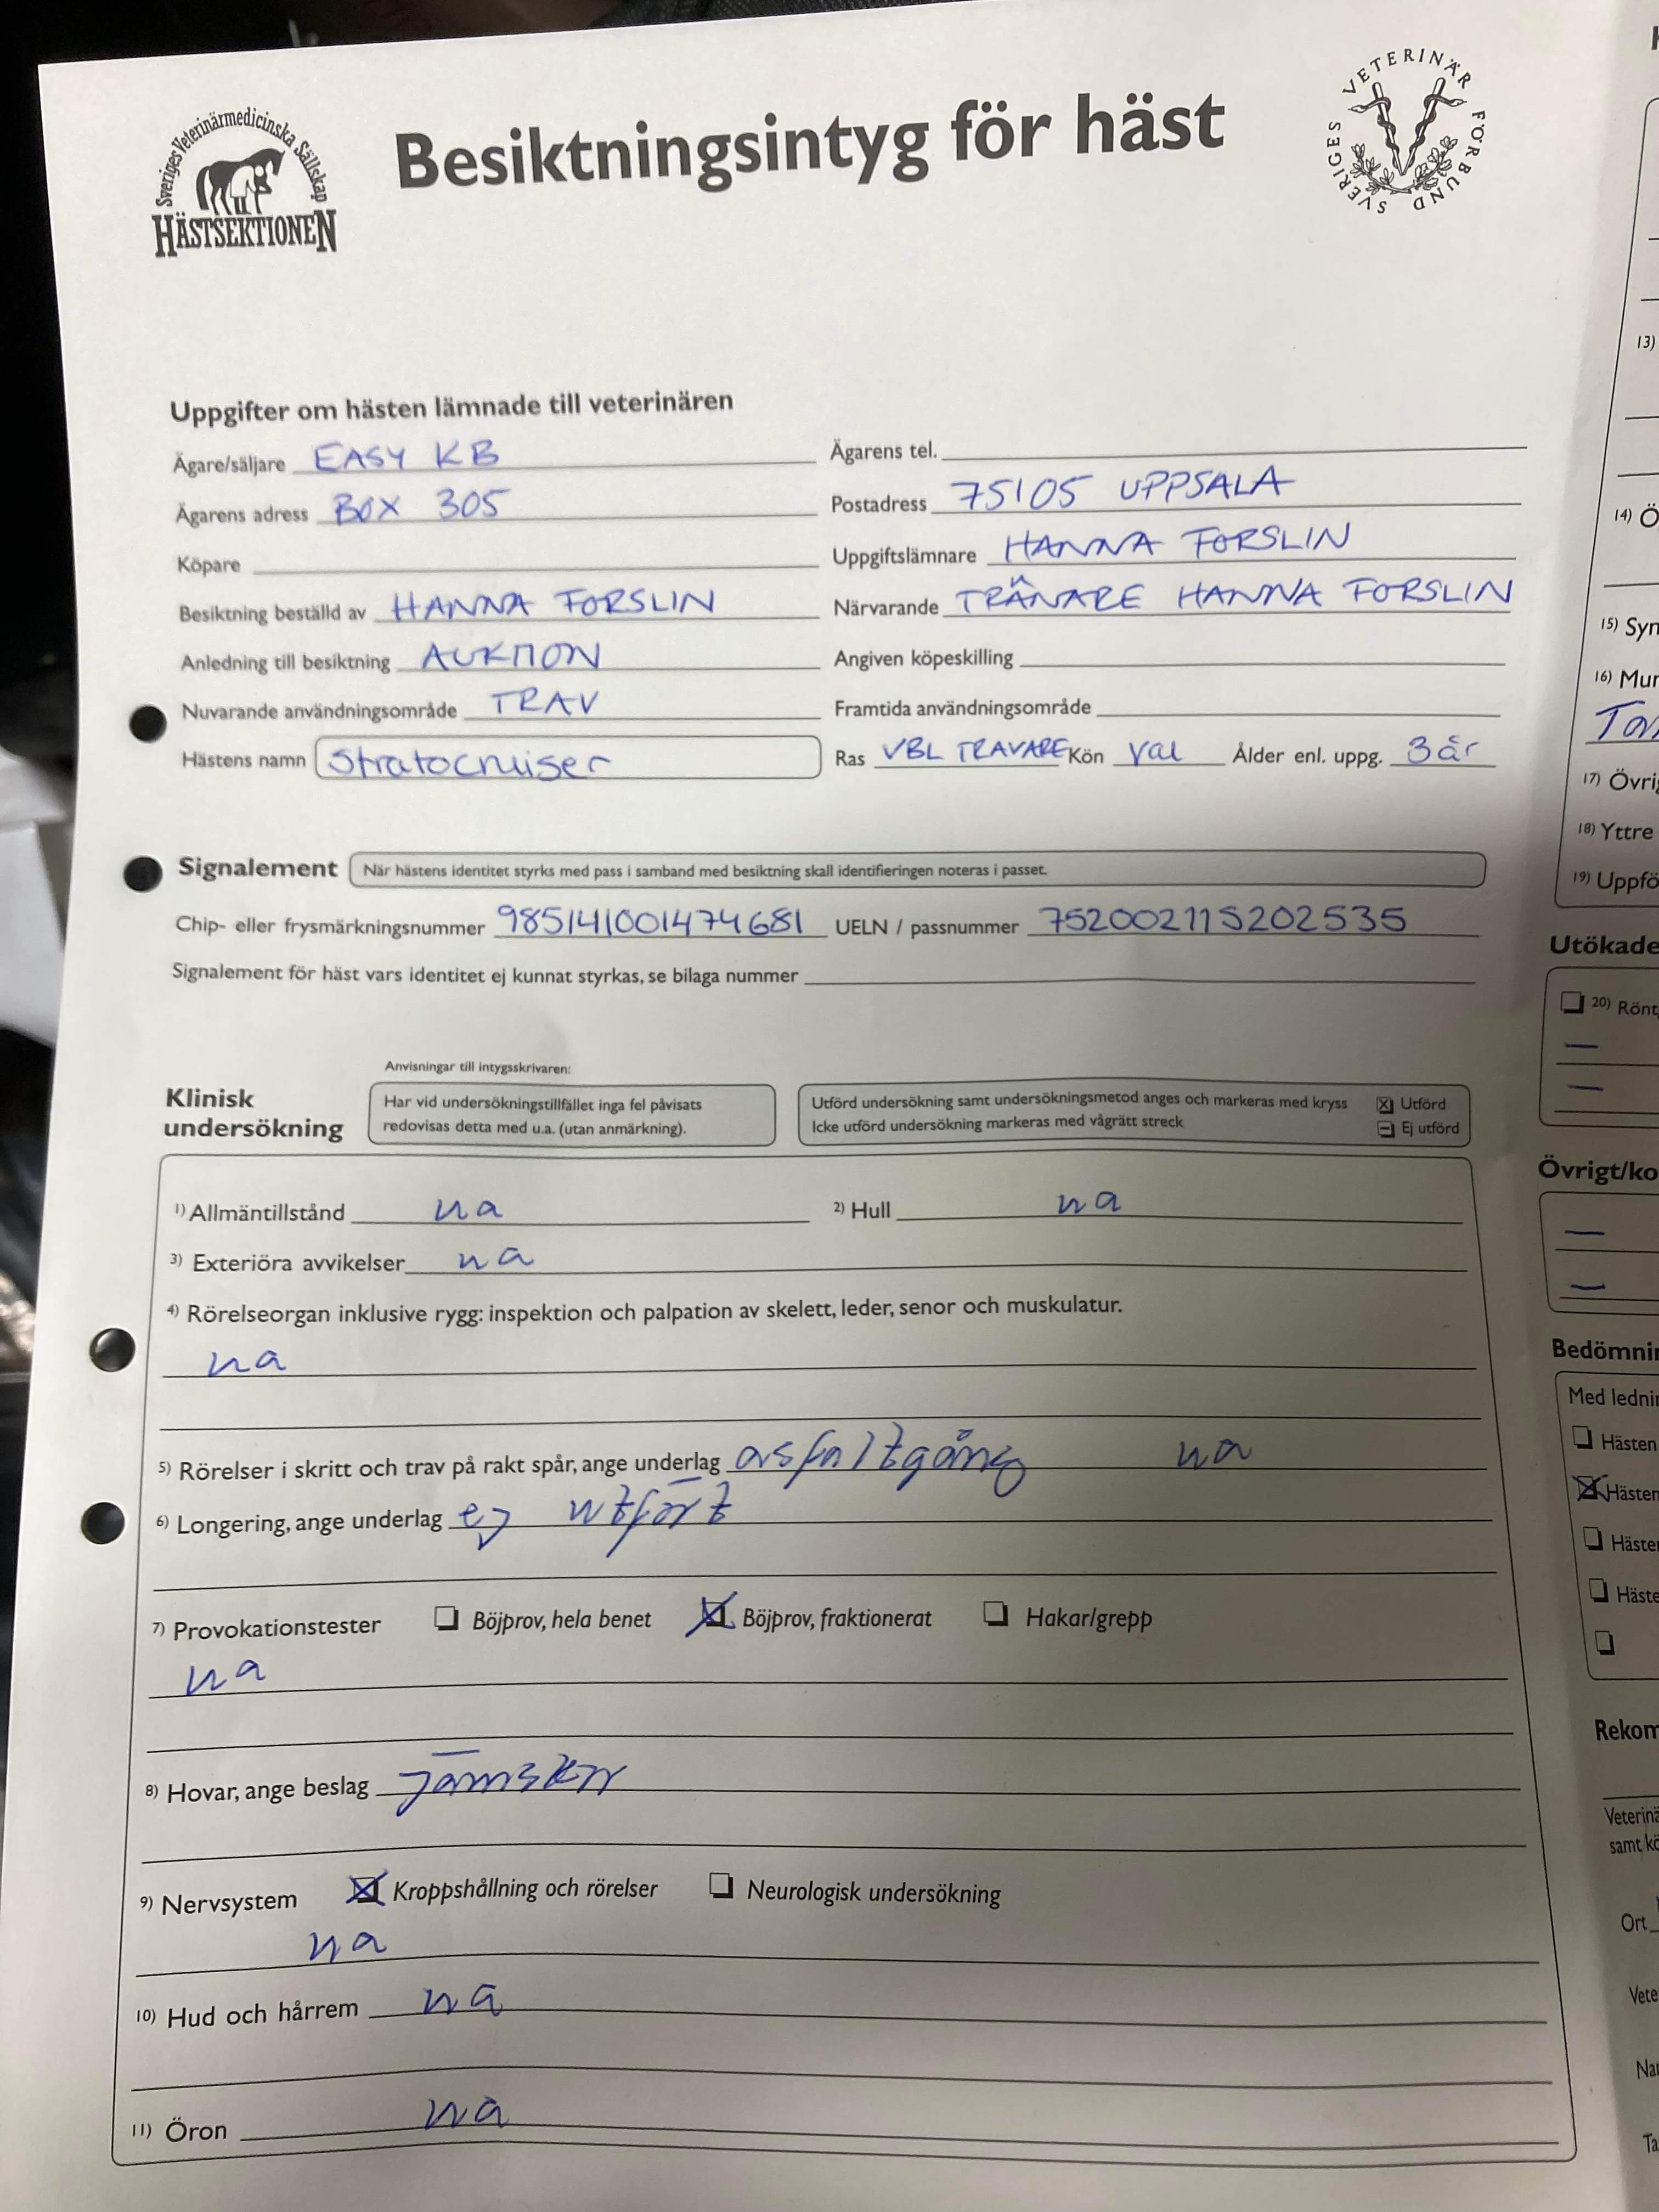 Sveriges Veterinärmedicinska Sällskap
HÄSTSEKTIONEN
Besiktningsintyg för häst
SVERIGES VETERINÄR FÖRBUND
Uppgifter om hästen lämnade till veterinären
Ägare/säljare EASY KB Ägarens tel.
Ägarens adress BOX 305 Postadress 75105 UPPSALA
Köpare Uppgiftslämnare HANNA FORSLIN
Besiktning beställd av HANNA FORSLIN Närvarande TRÄNARE HANNA FORSLIN
Anledning till besiktning AUKTION Angiven köpeskilling
Nuvarande användningsområde TRAV Framtida användningsområde
Hästens namn Stratocruiser Ras VBL TRAVARE Kön val Ålder enl. uppg. 3 år
Signalement När hästens identitet styrks med pass i samband med besiktning skall identifieringen noteras i passet.
Chip- eller frysmärkningsnummer 985141001474681 UELN / passnummer 752002115202535
Signalement för häst vars identitet ej kunnat styrkas, se bilaga nummer
Anvisningar till intygsskrivaren:
Klinisk undersökning
Har vid undersökningstillfället inga fel påvisats
redovisas detta med u.a. (utan anmärkning).
Utförd undersökning samt undersökningsmetod anges och markeras med kryss Utförd
Icke utförd undersökning markeras med vågrätt streck Ej utförd
1) Allmäntillstånd ua 2) Hull ua
3) Exteriöra avvikelser ua
4) Rörelseorgan inklusive rygg: inspektion och palpation av skelett, leder, senor och muskulatur.
ua
5) Rörelser i skritt och trav på rakt spår, ange underlag asfaltgång ua
6) Longering, ange underlag ej utfört
7) Provokationstester Böjprov, hela benet Böjprov, fraktionerat Hakar/grepp
ua
8) Hovar, ange beslag järnskor
9) Nervsystem Kroppshållning och rörelser Neurologisk undersökning
ua
10) Hud och hårrem ua
11) Öron ua
13)
14) Ö
15) Syn
16) Mun
17) Övri
18) Yttre
19) Uppfö
Utökade
20) Rönt
Övrigt/ko
Bedömnin
Med lednin
Hästen
Hästen
Häste
Häste
Rekom
Veterinä
samt kö
Ort
Vete
Na
Ta